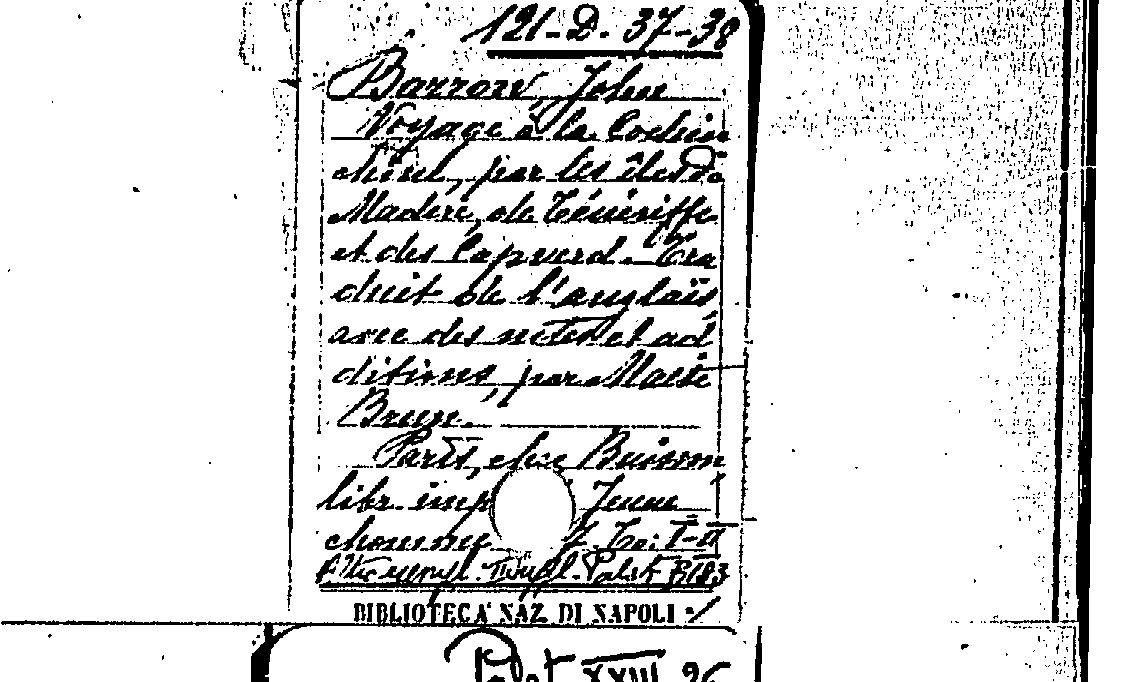 121-D. 37-38
Barrow, John
Voyage à la Cochin
chine, par les îles de
Madère, de Ténériffe
et des Cap verd. Tra
duit de l'anglaïs
avec des notes et ad
ditions, par Malte
Brun.
Paris, chez Buisson
libr. imp Jeune
homme To: I-II
Palat B183
BIBLIOTECA NAZ. DI NAPOLI
Palat XXIII 26